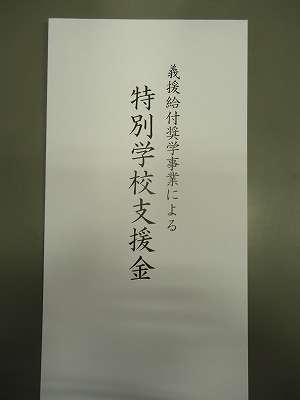 義援給付奨学事業による
特別学校支援金